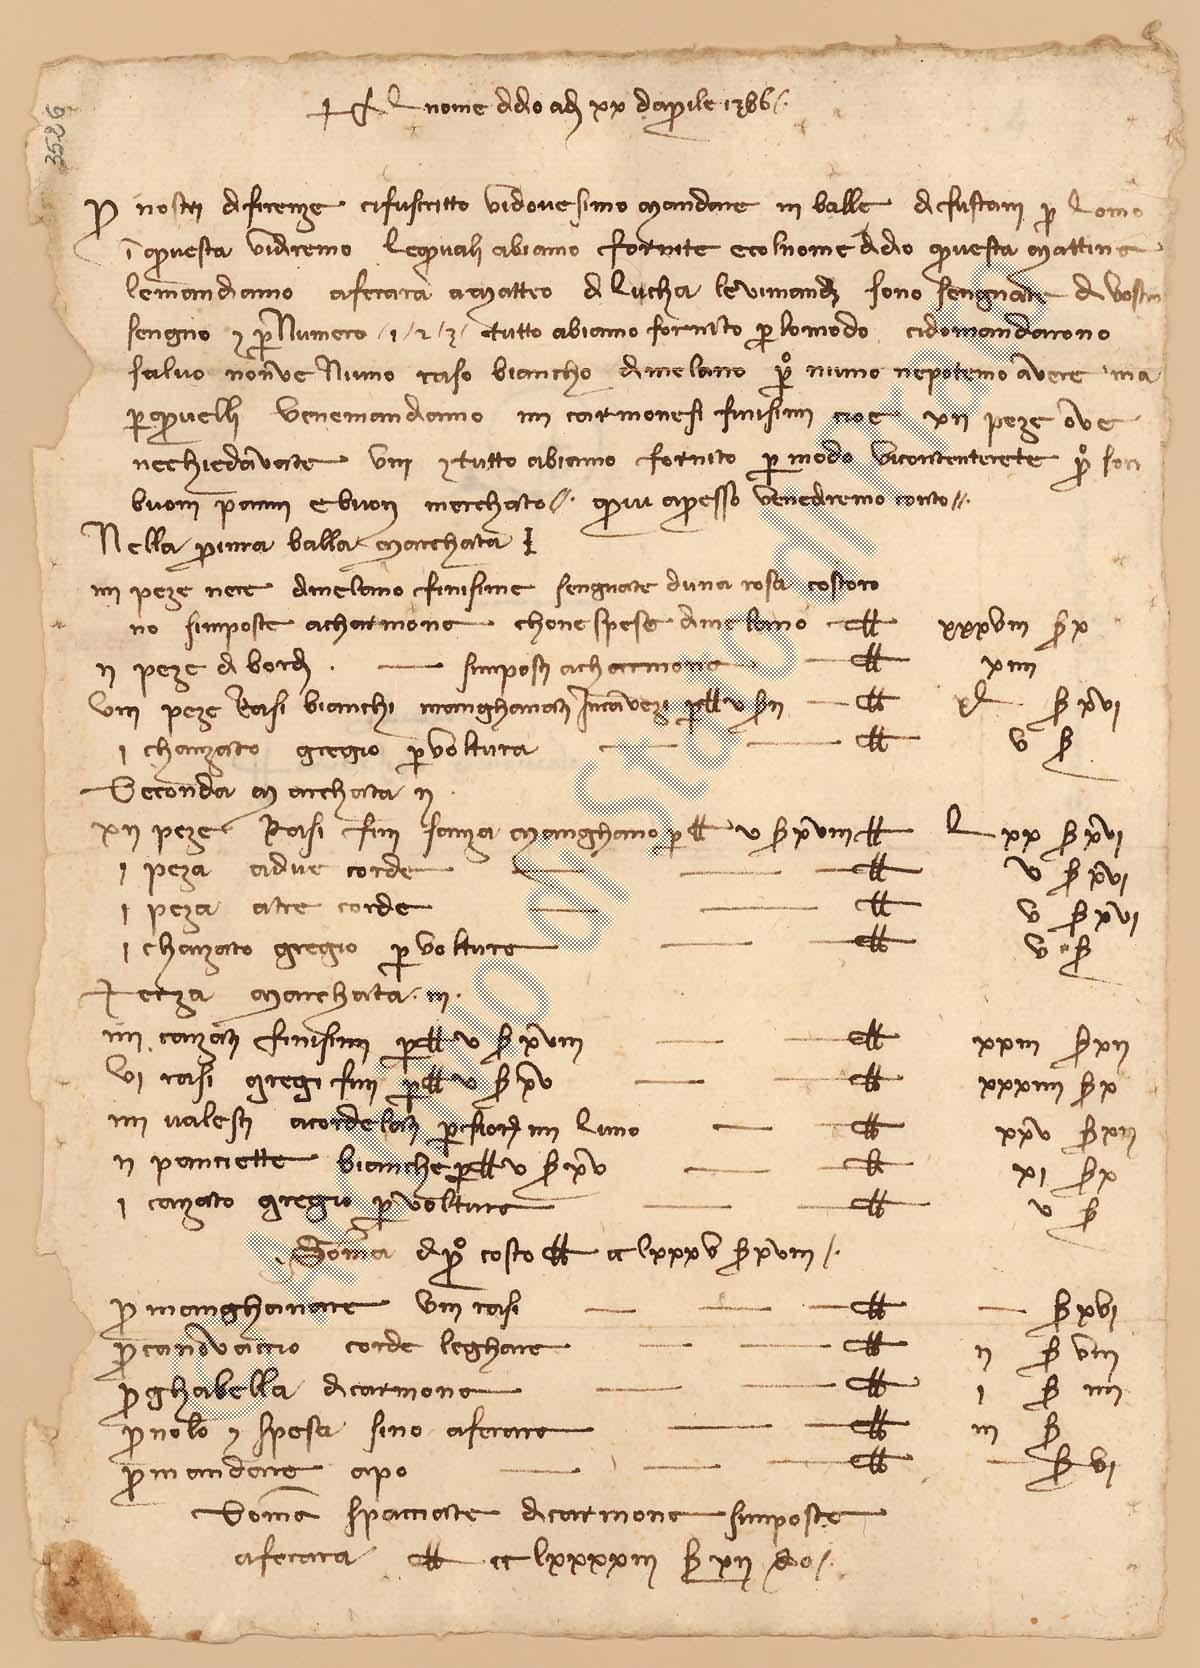 3526
nome di dio adi xx d aprile 1386
P nostri di firenze ci fu scritto vi dovesimo mandare in balle di fustani p lomo
questa vi diremo le quali abiamo fornite e col nome di dio questa mattina
le mandiamo a ferara a Matteo di Lucha le vi mandi sono sengnate di vostro
sengno e p Numero 1 2 3 e tutto abiamo fornito p lo modo ci domandarono
salvo non ve Niuno raso biancho di melano p niuno ne potemo avere ma
p quelli ve ne mandiamo iiii carmonesi finisimi cioe xii peze ove
ne chiedavate viii e tutto abiamo fornito p modo vi contenterete p son
buoni panni e buon merchato qui apesso ve ne diremo conto
Nella prima balla marchata I
iiii peze nere di melano finisime sengnate d una rosa costoro
no simposte a charmona chon e spese di melano xxxviii s x
ii peze di bordi simposti a charmona xiiii
viii peze Rasi bianchi manghanati p v s ii xl s xvi
i chanzato gregio p voltura v s
Seconda marchata ii
xii peze Rasi fini sanza manghano p v s xviii Lxx s xvi
i peza a due corde v s xvi
i peza a tre corde v s xvi
i chanzato gregio p voltura v s
Terza marchata iii
iiii canzati finisimi p v s xviii xxiii s xii
vi rasi gregi fini p v s xv xxxiiii s x
iiii valesci acordelati p fiorini iiii l uno xxv s xii
ii panciette bianche p v s xv xi s x
i canzato gregio p voltura v s
Soma di p costo cc lxxxv s xviii
p manghanare viii rasi s xvi
p canovaccio corde leghare ii s viii
p ghabella di carmona i s iiii
p nolo e spesa sino a ferara iii s
p mandare a po s vi
Soma spacciate di carmona simposte
a ferara cc lxxxxiii s xii do